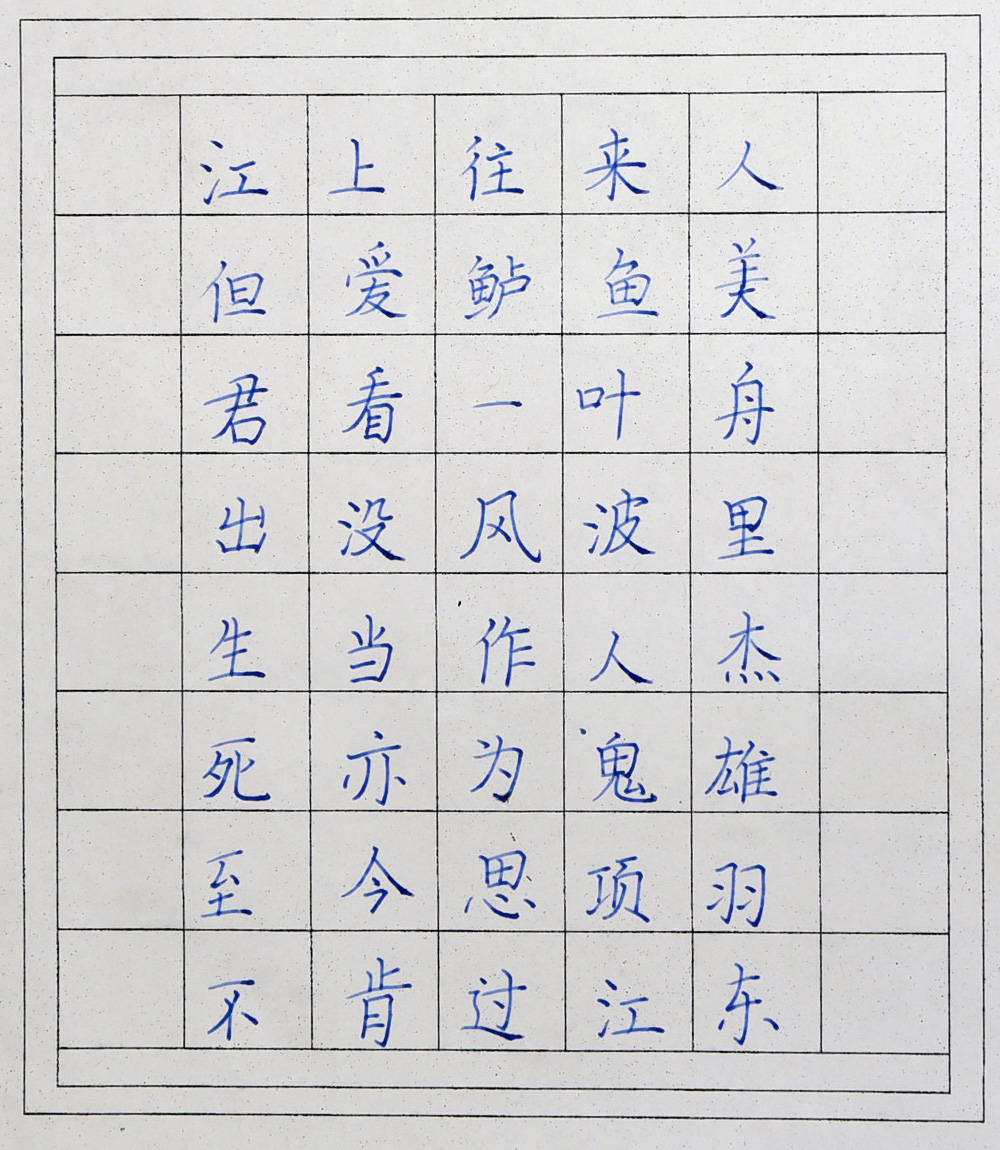 江上往来人
但爱鲈鱼美
君看一叶舟
出没风波里
生当作人杰
死亦为鬼雄
至今思项羽
不肯过江东